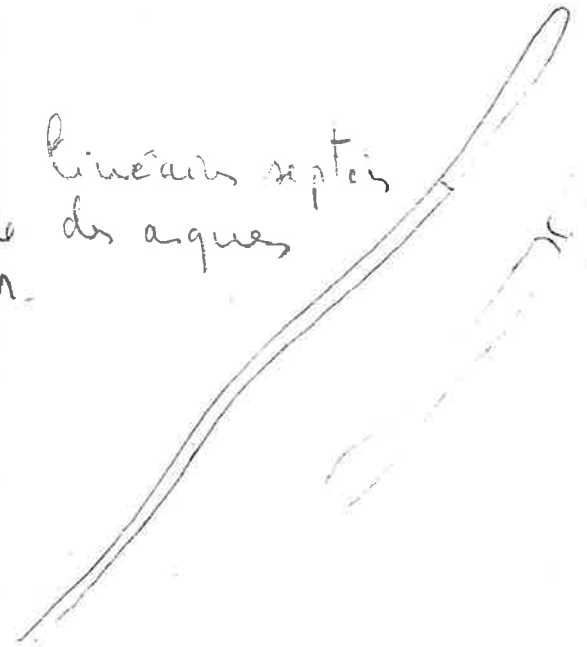 linéaires septés
des asques